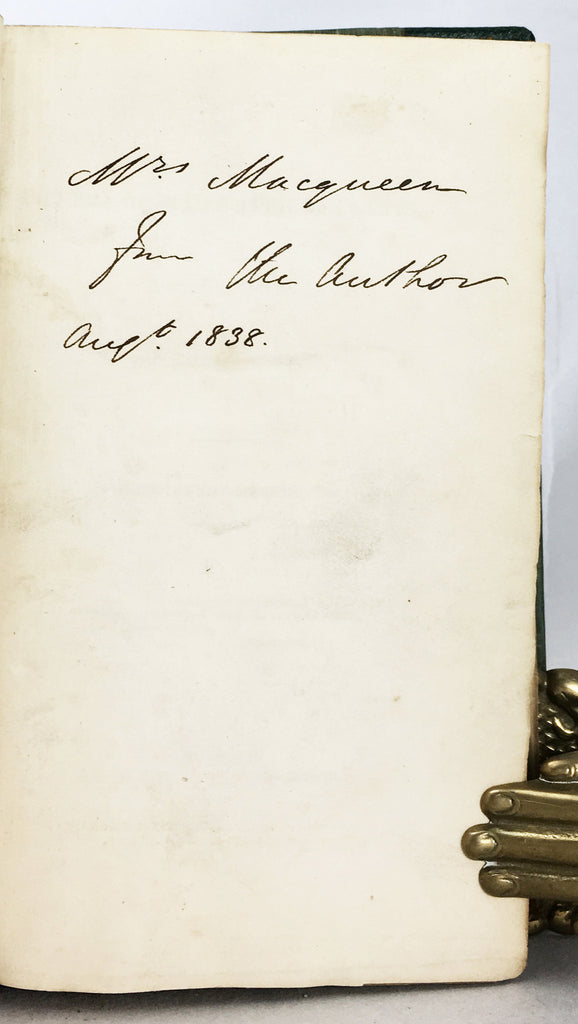 Mrs Macqueen
from the Author
Augt. 1838.